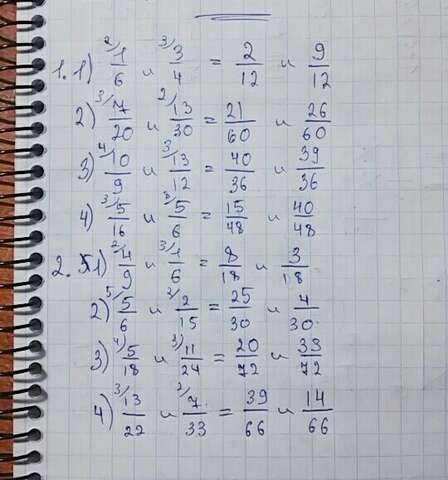 1. 1) ²/1/6 и ³/3/4 = 2/12 и 9/12
2) ³/7/20 и ²/13/30 = 21/60 и 26/60
3) ⁴/10/9 и ³/13/12 = 40/36 и 39/36
4) ³/5/16 и ⁸/5/6 = 15/48 и 40/48
2. 1) ²/4/9 и ³/1/6 = 8/18 и 3/18
2) ⁵/5/6 и ²/2/15 = 25/30 и 4/30
3) ⁴/5/18 и ³/11/24 = 20/72 и 33/72
4) ³/13/22 и ²/7/33 = 39/66 и 14/66